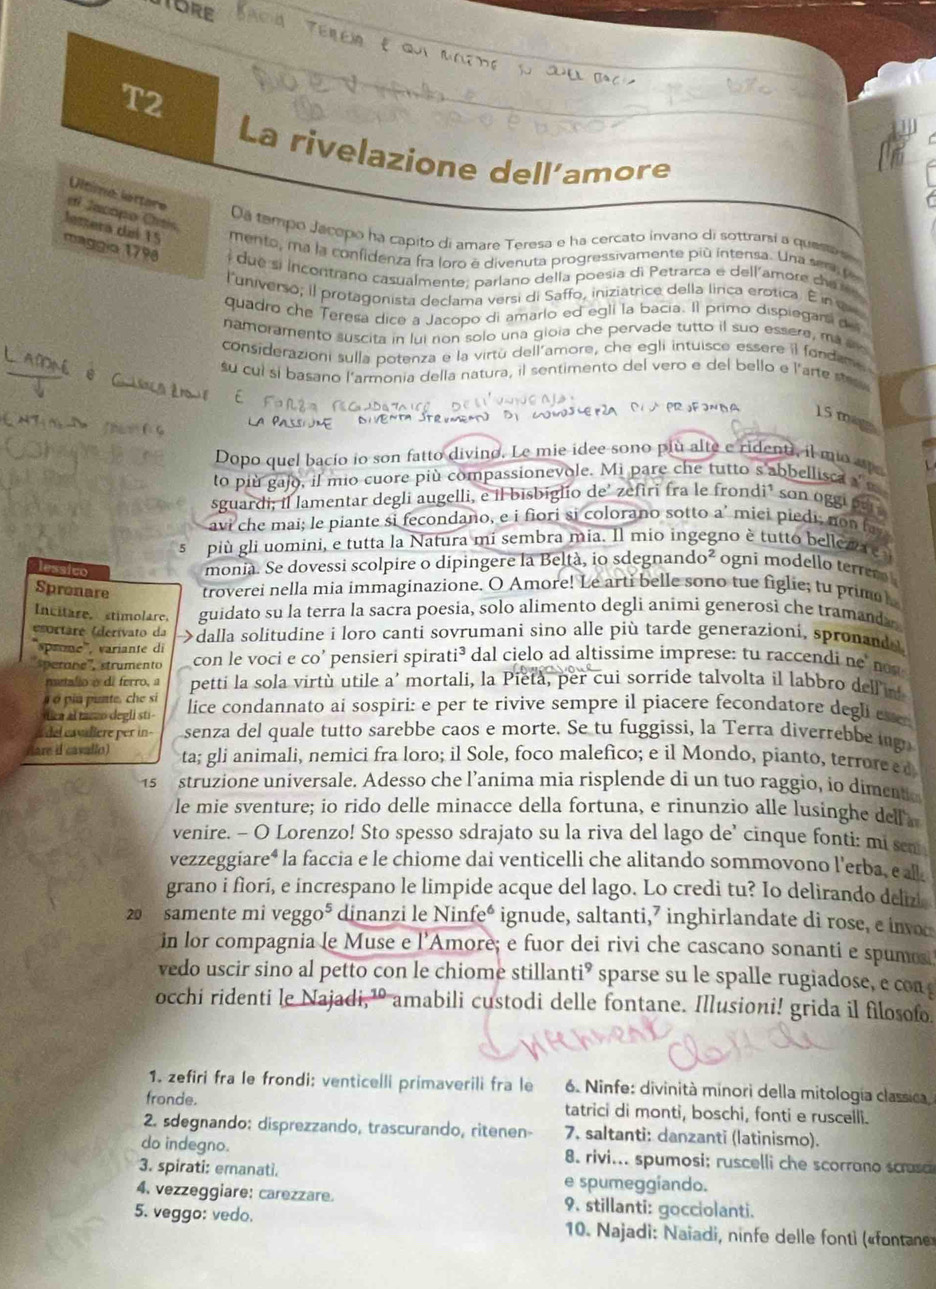 TERESA E QUI
T2
La rivelazione dell'amore
Ultime lettere
di Jacopo Ortis,
lettera del 15
maggio 1798
Da tempo Jacopo ha capito di amare Teresa e ha cercato invano di sottrarsi a questo
mento, ma la confidenza fra loro è divenuta progressivamente più intensa. Una sera
i due si incontrano casualmente; parlano della poesia di Petrarca e dell'amore che
l'universo; il protagonista declama versi di Saffo, iniziatrice della lirica erotica. È in
quadro che Teresa dice a Jacopo di amarlo ed egli la bacia. Il primo dispiegarsi
namoramento suscita in lui non solo una gioia che pervade tutto il suo essere, ma
considerazioni sulla potenza e la virtù dell'amore, che egli intuisce essere il
su cui si basano l'armonia della natura, il sentimento del vero e del bello e l'arte
È FORZA
LA PASSIONE DIVENTA STRUMENTO DI CONOSCENZA PIÙ PROFONDA
15
Dopo quel bacio io son fatto divino. Le mie idee sono più alte e ridenti, il mio
to più gajo, il mio cuore più compassionevole. Mi pare che tutto s'abbellisca a'
sguardi; il lamentar degli augelli, e il bisbiglio de' zefiri fra le frondi¹ son oggi più
avi che mai; le piante si fecondano, e i fiori si colorano sotto a' miei piedi; non
5 più gli uomini, e tutta la Natura mi sembra mia. Il mio ingegno è tutto bellezza e
monia. Se dovessi scolpire o dipingere la Beltà, io sdegnando² ogni modello terreno
troverei nella mia immaginazione. O Amore! Le arti belle sono tue figlie; tu primo
guidato su la terra la sacra poesia, solo alimento degli animi generosi che
dalla solitudine i loro canti sovrumani sino alle più tarde generazioni,
con le voci e co' pensieri spirati³ dal cielo ad altissime imprese: tu raccendi ne'
compassione
petti la sola virtù utile a' mortali, la Pietà, per cui sorride talvolta il labbro
lice condannato ai sospiri: e per te rivive sempre il piacere fecondatore degli
senza del quale tutto sarebbe caos e morte. Se tu fuggissi, la Terra diverrebbe
ta; gli animali, nemici fra loro; il Sole, foco malefico; e il Mondo, pianto, terrore e
15 struzione universale. Adesso che l'anima mia risplende di un tuo raggio, io
le mie sventure; io rido delle minacce della fortuna, e rinunzio alle lusinghe
venire. – O Lorenzo! Sto spesso sdrajato su la riva del lago de' cinque fonti: mi
vezzeggiare⁴ la faccia e le chiome dai venticelli che alitando sommovono l'erba, e
grano i fiori, e increspano le limpide acque del lago. Lo credi tu? Io delirando
20 samente mi veggo⁵ dinanzi le Ninfe⁶ ignude, saltanti,⁷ inghirlandate di rose, e
in lor compagnia le Muse e l'Amore; e fuor dei rivi che cascano sonanti e
vedo uscir sino al petto con le chiome stillanti⁹ sparse su le spalle rugiadose, e con
occhi ridenti le Najadi,¹⁰ amabili custodi delle fontane. Illusioni! grida il filosofo.
lessico
Spronare
Incitare, stimolare,
esortare (derivato da
"sprone", variante di
"sperone", strumento
metallo o di ferro, a
o più punte, che si
al tacco degli sti-
del cavaliere per in-
il cavallo)
1. zefiri fra le frondi: venticelli primaverili fra le
fronde.
2. sdegnando: disprezzando, trascurando, ritenen-
do indegno.
3. spirati: emanati.
4. vezzeggiare: carezzare.
5. veggo: vedo.
6. Ninfe: divinità minori della mitologia classica,
tatrici di monti, boschi, fonti e ruscelli.
7. saltanti: danzanti (latinismo).
8. rivi... spumosi: ruscelli che scorrono
e spumeggiando.
9. stillanti: gocciolanti.
10. Najadi: Naiadi, ninfe delle fonti («fontane»